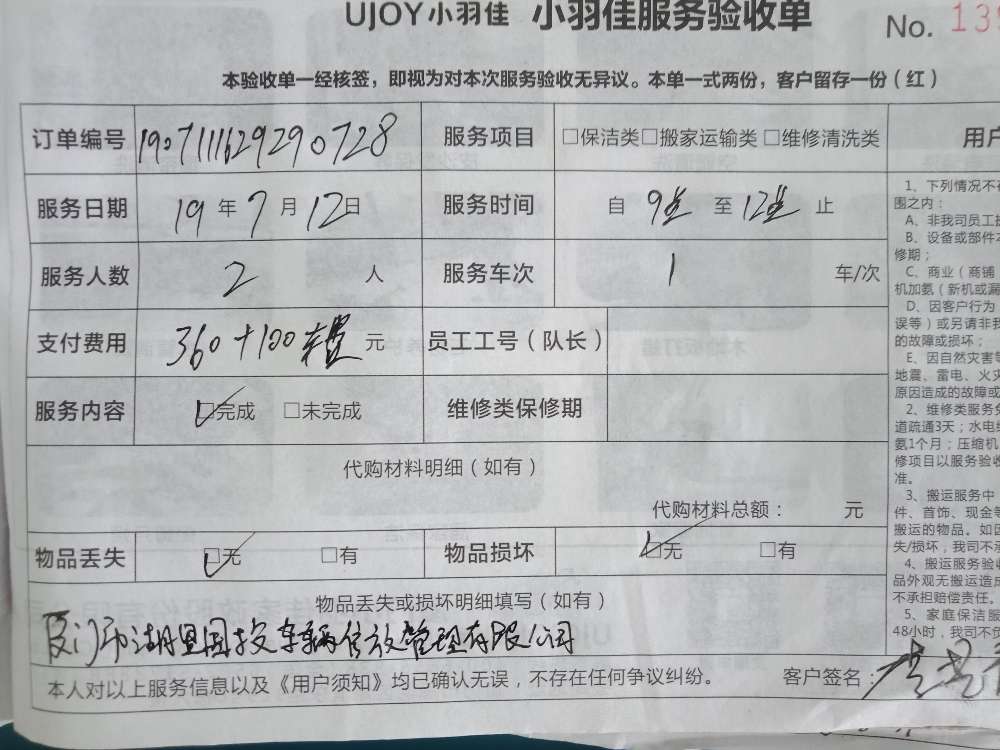 UJOY小羽佳 小羽佳服务验收单 No. 138
本验收单一经核签，即视为对本次服务验收无异议。本单一式两份，客户留存一份（红）
订单编号 1907111629290728 服务项目 □保洁类□搬家运输类□维修清洗类 用户
服务日期 19 年 7 月 12日 服务时间 自 9点 至 12点 止
服务人数 2 人 服务车次 1 车/次
支付费用 360+100车费 元 员工工号（队长）
服务内容 ☑完成 □未完成 维修类保修期
代购材料明细（如有）
代购材料总额： 元
物品丢失 ☑无 □有 物品损坏 ☑无 □有
物品丢失或损坏明细填写（如有）
厦门市湖里国投车辆停放管理有限公司
本人对以上服务信息以及《用户须知》均已确认无误，不存在任何争议纠纷。 客户签名：
1、下列情况不在
围之内：
A、非我司员工
B、设备或部件
修期；
C、商业（商铺
机加氨（新机或漏
D、因客户行为
误等）或另请非我
的故障或损坏；
E、因自然灾害等
地震、雷电、火灾
原因造成的故障或
2、维修类服务免
道疏通3天；水电维
氨1个月；压缩机
修项目以服务验收
准。
3、搬运服务中
件、首饰、现金等
搬运的物品。如因
失/损坏，我司不承
4、搬运服务验收
品外观无搬运造成
不承担赔偿责任。
5、家庭保洁服
48小时，我司不